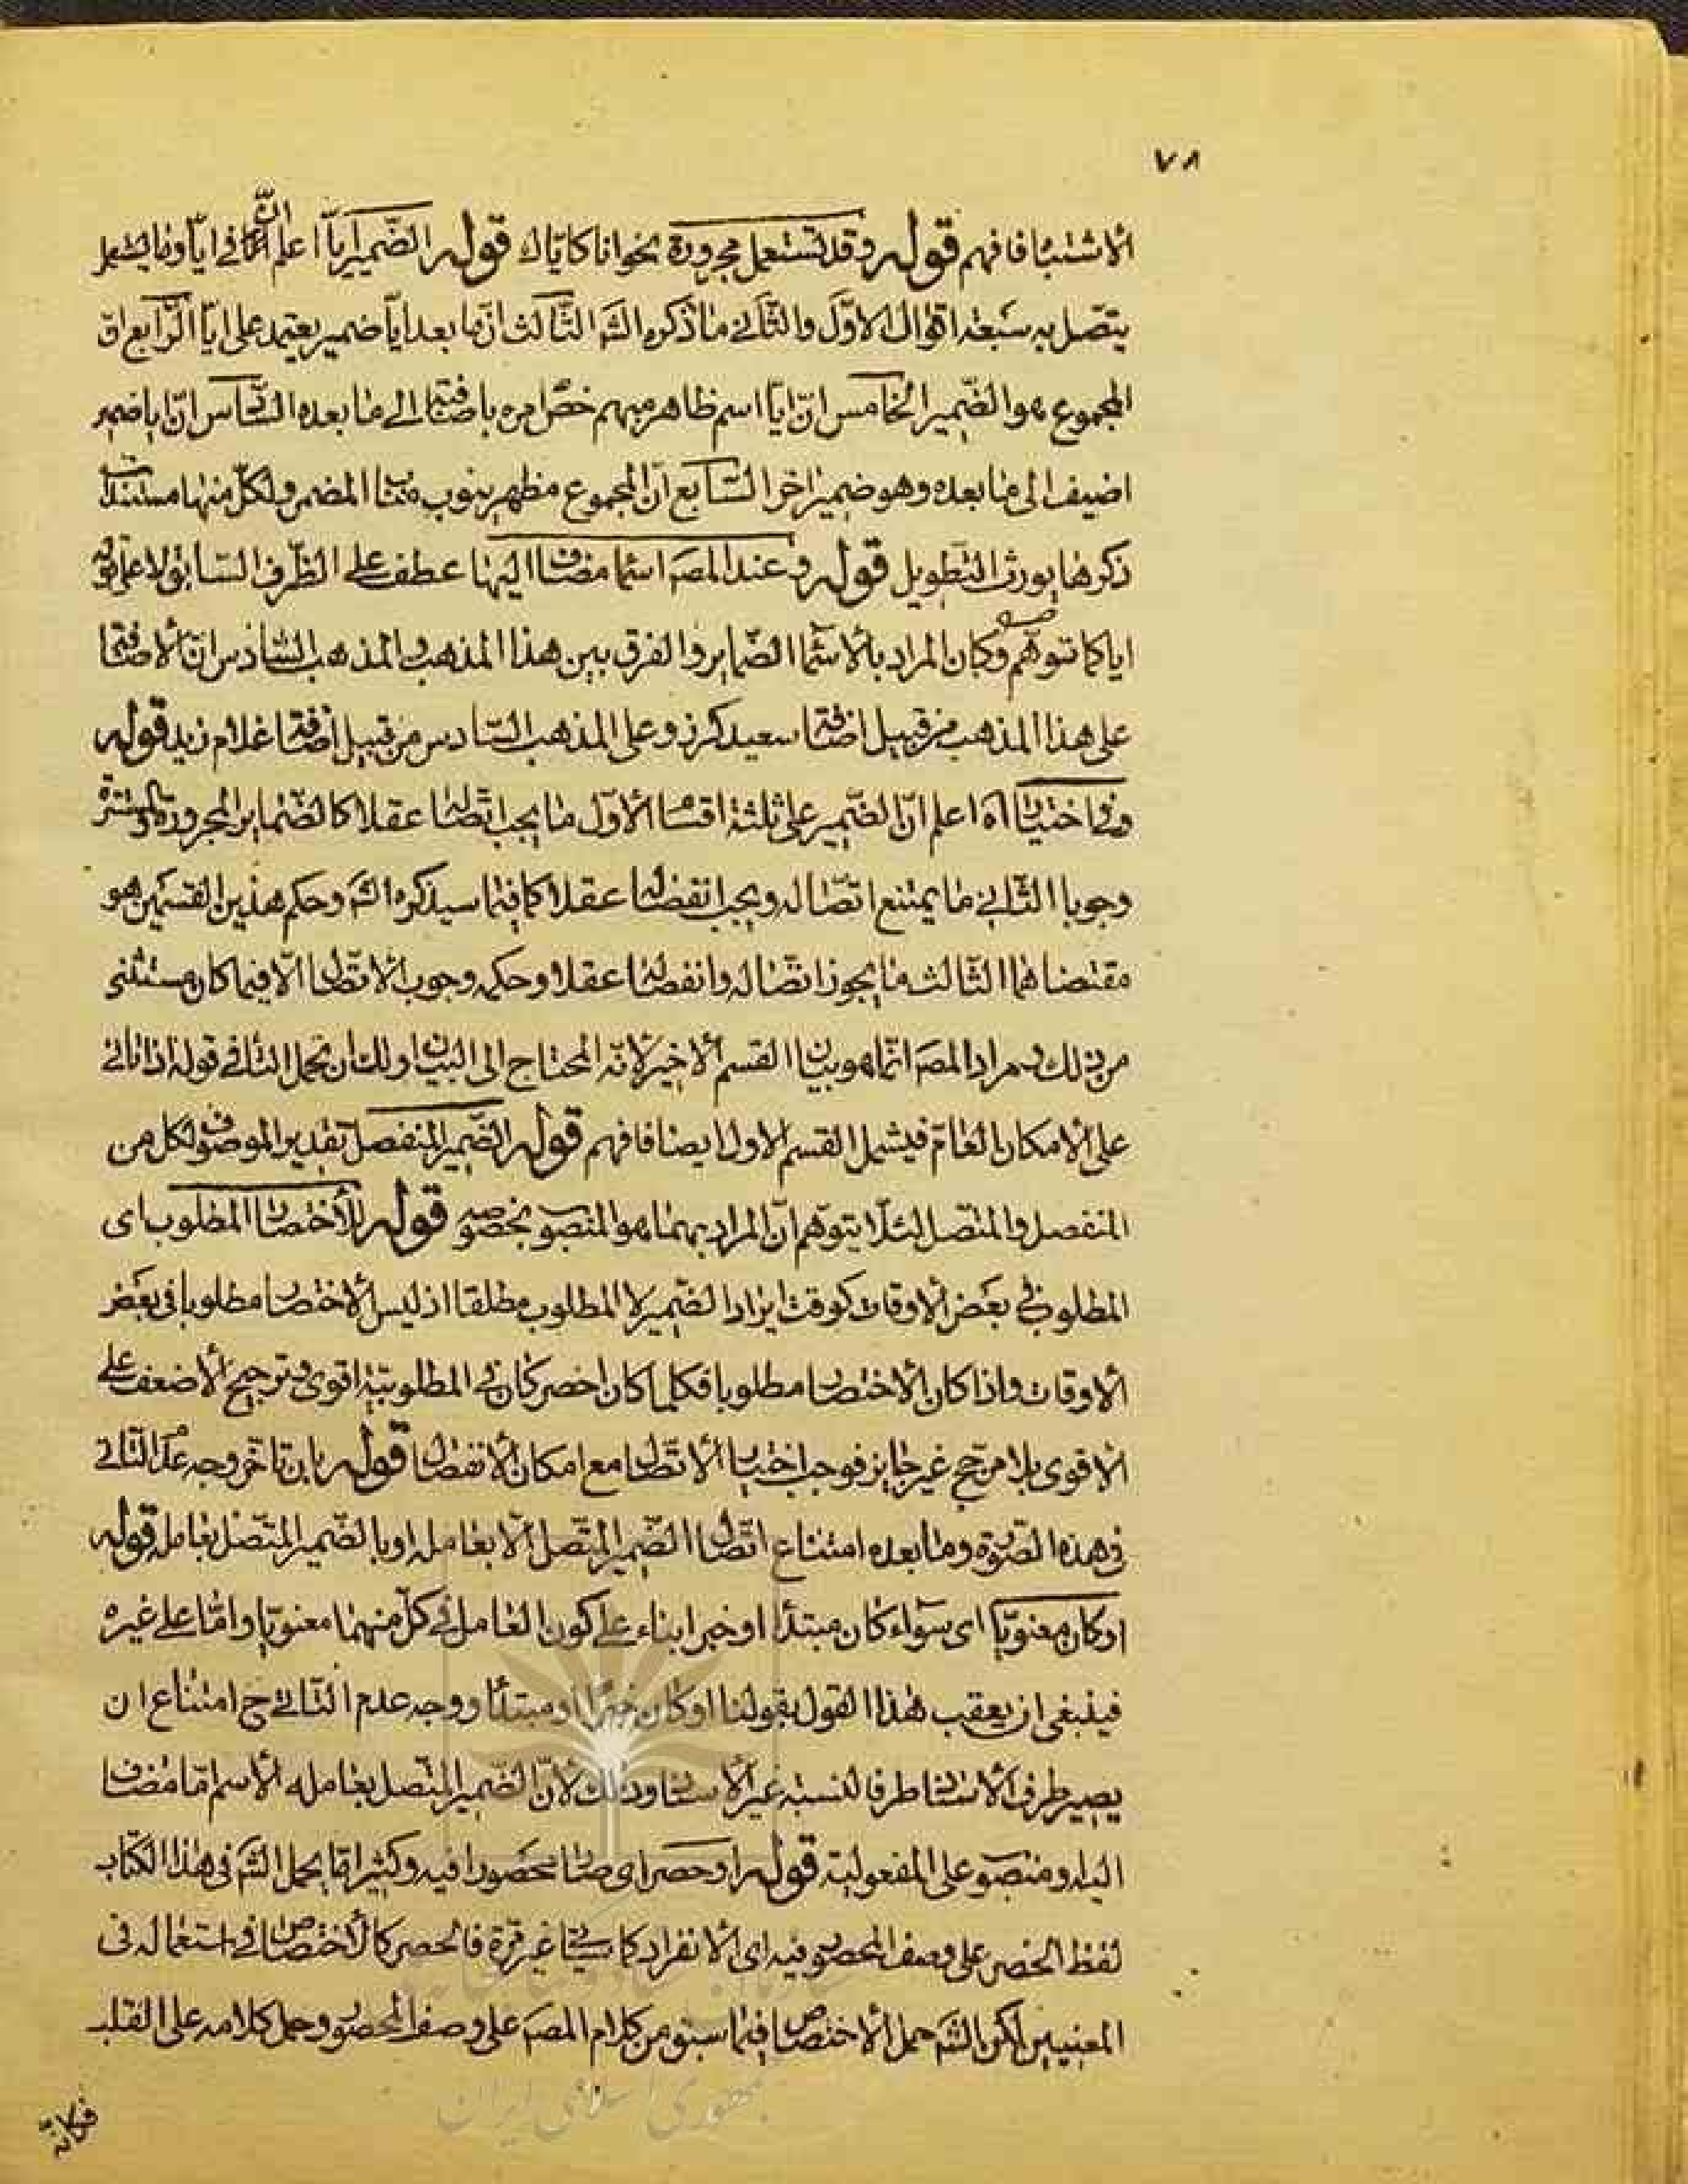 ٧٨
الاشتباه فافهم قوله وقد تستعمل مجرورة نحو انا كاياك قوله الضمير ايا اعلم انّ في ايا وما
يتصل به سبعة اقوال الاول والثاني ما ذكره الشم الثالث ان ما بعد ايا ضمير يعتمد على ايا الرابع ان
المجموع هو الضمير الخامس ان ايا اسم ظاهر مبهم خص امره باضافته الى ما بعده السادس ان ايا ضمير
اضيف الى ما بعده وهو ضمير اخر السابع ان المجموع مظهر ينوب مناب المضمر ولكل منها مستندات
ذكرها يورث التطويل قوله وعند المصم اسما مضاف اليها عطف على الظرف السابق لا على قوله
ايا كما توهم وكان المراد بالاسماء الضماير والفرق بين هذا المذهب والمذهب السادس ان الاضافة
على هذا المذهب من قبيل اضافة سعيد كرز وعلى المذهب السادس من قبيل اضافة غلام زيد قوله
وفي اختيار اه اعلم ان الضمير على ثلثة اقسام الاول ما يجب اتصاله عقلا كالضماير المجرورة والمستترة
وجوبا الثاني ما يمتنع اتصاله ويجب انفصاله عقلا كما فيما سيذكره الشم وحكم هذين القسمين هو
مقتضاهما الثالث ما يجوز اتصاله وانفصاله عقلا وحكمه وجوب الاتصال الا فيما كان مستثنى
من ذلك ومراد المصم انما هو بيان القسم الاخير لانه المحتاج الى البيان ولك ان تحمل التأتي في قوله اذا تأتى
على الامكان العام فيشمل القسم الاول ايضا فافهم قوله الضمير المنفصل تقدير الموصوف لكل من
المنفصل والمتصل لئلا يتوهم ان المراد بهما هو المنصوب بخصوصه قوله للاختصار المطلوب اى
المطلوب في بعض الاوقات كوقت ايراد الضمير لا المطلوب مطلقا اذ ليس الاختصار مطلوبا في بعض
الاوقات واذا كان الاختصار مطلوبا فكلما كان اخصر كان في المطلوبية اقوى وترجيح الاضعف على
الاقوى بلا مرجح غير جايز فوجب اختيار الاتصال مع امكان الانفصال قوله بان تأخر وجه عدم التأتي
في هذه الصورة وما بعده امتناع اتصال الضمير المتصل الا بعامله او بالضمير المتصل بعامله قوله
او كان معنويا اى سواء كان مبتدأ او خبرا بناء على كون العامل في كل منهما معنويا واما على غيره
فينبغي ان يعقب هذا القول بقولنا او كان خبرا او مبتدأ ووجه عدم التأتي ح امتناع ان
يصير طرف الاسناد طرفا لنسبة غير الاسناد وذلك لان الضمير المتصل بعامله الاسم اما مضاف
اليه او منصوب على المفعولية قوله او حصر اى صار محصورا فيه وكثيرا ما يحمل الشم في هذا الكتاب
لفظ الحصر على وصف المحصور فيه اى الانفراد كما سيأتي غير مرة فالحصر كالاختصاص في استعماله في
المعنيين لكن الشم حمل الاختصاص فيما سبق من كلام المصم على وصف المحصور وحمل كلامه على القلب
فكانه
جمهوری اسلامی ایران